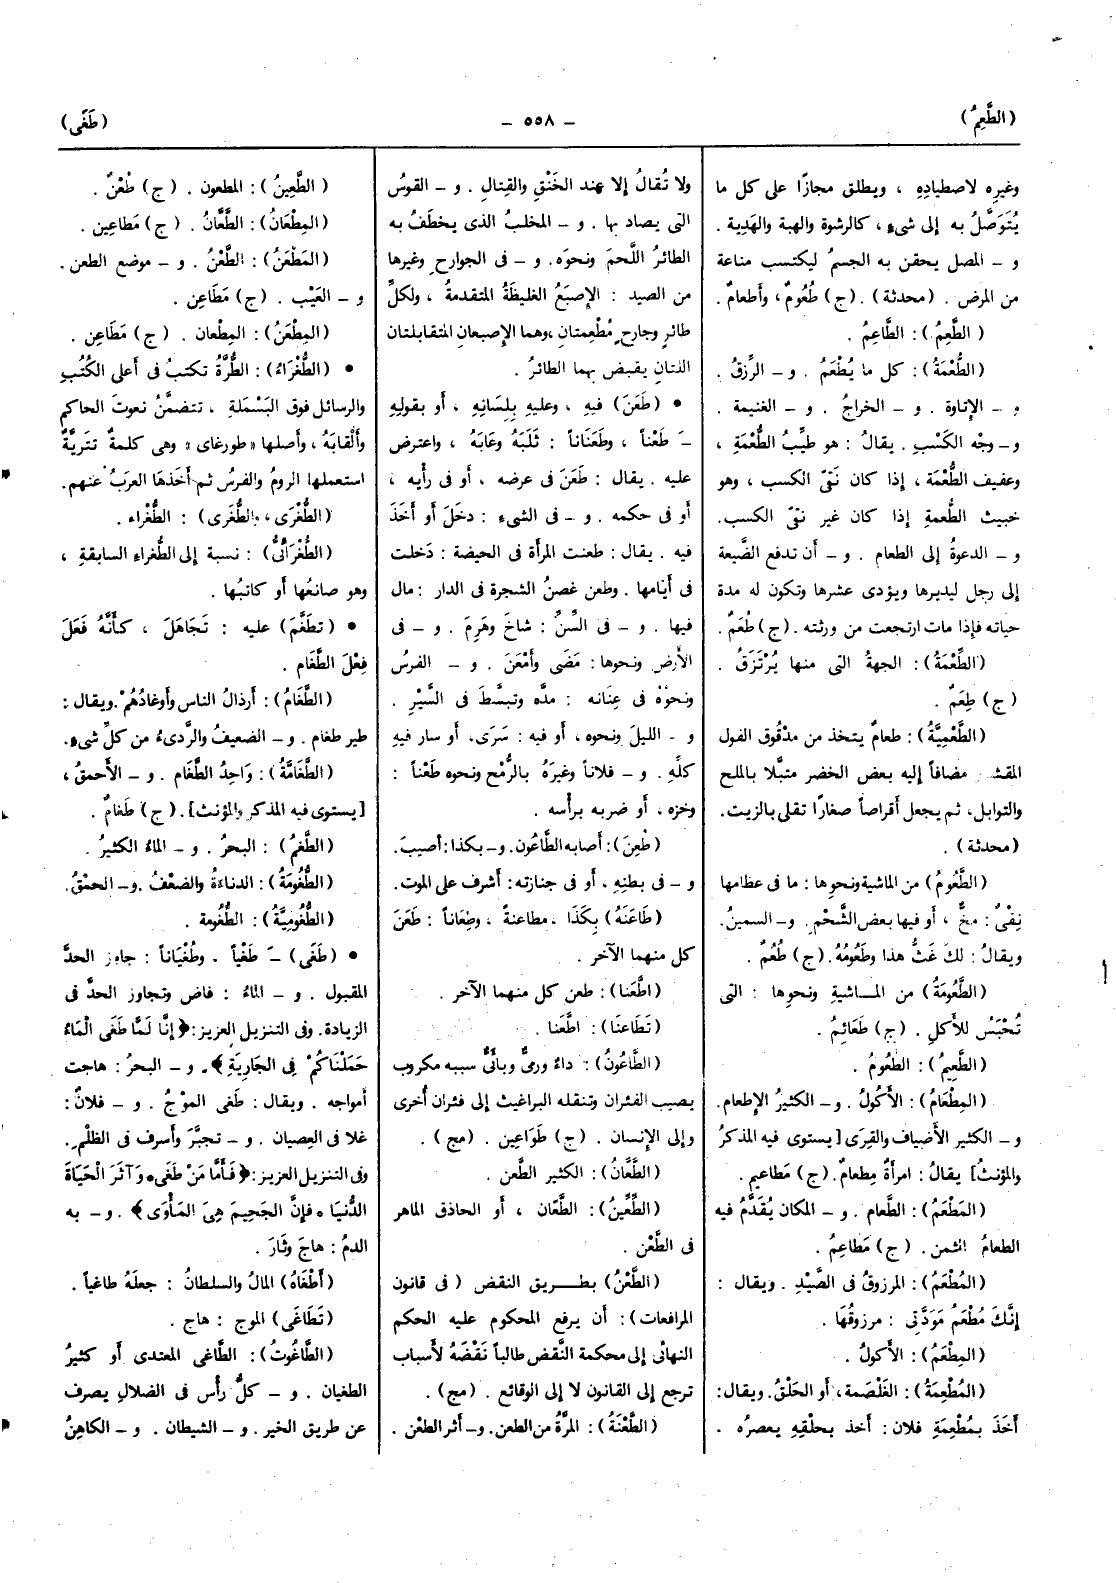 (الطَّعِمُ)
– ٥٥٨ –
(طَغَى)
وغيره لاصطيادِهِ ، ويطلق مجازًا على كل ما
يُتَوَصَّلُ به إلى شىءٍ ، كالرشوة والهبة والهَدِية .
و – المصل يحقن به الجسمُ ليكتسب مناعة
من المرض . (محدثة) . (ج) طُعُومٌ ، وأَطعامٌ .
(الطَّعِمُ): الطَّاعِمُ .
(الطُّعْمَةُ): كل ما يُطْعَمُ . و – الرِّزقُ .
و – الإتاوة . و – الخراجُ . و – الغنيمة .
و – وجْه الكَسْبِ . يقالُ : هو طيِّبُ الطُّعْمَةِ ،
وعفيف الطُّعْمَة ، إذا كان نَقِىّ الكسب ، وهو
خبيث الطُّعمةِ إذا كان غير نقىّ الكسب.
و – الدعوةُ إلى الطعام . و – أن تدفع الضَّيعة
إلى رجل ليديرها ويؤدى عشرها وتكون له مدة
حياته فإذا مات ارتجعت من ورثته . (ج) طُعَمٌ .
(الطِّعْمَةُ): الجهةُ التى منها يُرْتَزَقُ .
(ج) طِعَمٌ .
(الطَّعْمِيَّةُ): طعامٌ يتخذ من مدْقوق الفول
المقشر مضافاً إليه بعض الخضر متبَّلا بالملح
والتوابل، ثم يجعل أقراصاً صغارًا تقلى بالزيت.
(محدثة) .
(الطَّعُومُ) من الماشية ونحوها : ما فى عظامها
نِقْىٌ : مخٌّ ، أو فيها بعض الشَّحْم . و– السمينُ.
ويقالُ : لكَ غَثُّ هذا وطَعُومُهُ. (ج) طُعُمٌ .
(الطَّعُومَةُ) من المـاشيةِ ونحوها : التى
تُحْبَسُ للأَكلِ . (ج) طَعَائِمُ .
(الطَّعِيمُ): الطَّعُومُ .
(المِطْعَامُ): الأَكُولُ . و– الكثيرُ الإطعام.
و – الكثير الأَضياف والقِرَى [يستوى فيه المذكرُ
والمؤنثُ] يقالُ : امرأةٌ مِطعامٌ. (ج) مَطاعيم .
(المَطْعَمُ): الطَّعام . و – المكان يُقَدَّمُ فيه
الطعامُ بالثمن . (ج) مَطاعِمُ .
(المُطْعَمُ): المرزوقُ فى الصَّيْدِ . ويقال :
إِنَّكَ مُطْعَمٌ مَوَدَّتِى : مرزوقُهَا .
(المِطْعَمُ): الأَكُولُ .
(المُطْعِمَةُ): الغَلْصَمة، أو الحَلْقُ. ويقال:
أَخَذَ بمُطْعِمَةِ فلان : أخذ بحلْقِهِ يعصرُه .
ولا تُقالُ إلا عِند الخَنْقِ والقِتالِ . و – القوسُ
التى يصاد بها . و – المخلبُ الذى يخطَفُ به
الطائرُ اللَّحمَ ونحوَه. و – فى الجوارح وغيرها
من الصيد : الإصبَعُ الغليظةُ المتقدمةُ ، ولكلِّ
طائرٍ وجارحٍ مُطْعِمتانِ ،وهما الإصبعانِ المتقابلتان
اللتانِ يقبض بهما الطائرُ .
• (طَعَنَ) فيهِ ، وعليهِ بِلِسَانِهِ ، أو بقولِهِ
ــَ طَعْناً ، وطَعَنَاناً : ثَلَبَهُ وعَابَهُ ، واعترض
عليه . يقال : طَعَنَ فى عرضه ، أو فى رأْيه ،
أو فى حكمه . و – فى الشىءِ : دخَلَ أو أخَذَ
فيه . يقال : طعنت المرأة فى الحيضة : دَخلت
فى أيامها . وطعن غصنُ الشجرة فى الدار : مال
فيها . و – فى السِّنِّ : شاخَ وهَرِمَ . و – فى
الأَرضِ ونحوها : مَضَى وأَمْعَنَ . و – الفرسُ
ونحوُهُ فى عِنَانه : مدَّه وتبسَّطَ فى السَّيْرِ .
و – الليلَ ونحوه ، أو فيه : سَرَى، أو سار فيهِ
كلِّهِ . و – فلاناً وغيرَهُ بالرُّمْحِ ونحوه طَعْناً :
وخزه ، أو ضربه برأْسه .
(طُعِنَ): أصابه الطَّاعُون. و– بكذا: أصيبَ.
و – فى بطنِهِ ، أو فى جنازته: أشرف على الموت.
(طَاعَنَهُ) بِكَذَا ، مطاعنةً ، وطِعَاناً : طَعَنَ
كل منهما الآخر .
(اطَّعَنا): طعن كل منهما الآخر .
(تَطَاعنَا): اطَّعَنا .
(الطَّاعُونُ): داءٌ ورمىٌّ وبائىٌّ سببه مكروب
يصيب الفئران وتنقله البراغيث إلى فئران أُخرى
وإلى الإنسان . (ج) طَوَاعِين . (مج) .
(الطَّعَّانُ): الكثير الطَّعن .
(الطِّعِّينُ): الطَّعَّان ، أو الحاذق الماهر
فى الطَّعْن .
(الطَّعْنُ) بطـريق النقض ( فى قانون
المرافعات): أن يرفع المحكوم عليه الحكم
النهائى إلى محكمة النَّقض طالباً نَقْضَهُ لأَسباب
ترجع إلى القانون لا إلى الوقائع . (مج) .
(الطَّعْنَةُ): المرَّةُ من الطعن. و– أثر الطعْن .
(الطَّعِينُ): المطعون . (ج) طُعْنٌ .
(المِطْعَانُ): الطَّعَّانُ . (ج) مَطاعِين .
(المَطْعَنُ): الطَّعْنُ . و – موضع الطعن.
و – العَيْب . (ج) مَطَاعِن .
(المِطْعَنُ): المِطْعان . (ج) مَطَاعِن .
• (الطُّغْرَاءُ): الطُّرَّةُ تكتبُ فى أعلى الكُتُبِ
والرسائل فوق البَسْمَلةِ ، تتضمَّنُ نعوتَ الحاكمِ
وألقابَهُ ، وأصلها « طورغاى » وهى كلمةٌ تتَريَّةٌ
استعملها الرومُ والفرسُ ثم أَخَذَها العَربُ عنهم.
(الطُّغْرَى، والطُّغَرى) : الطُّغْراء .
(الطُّغْرَائىُّ) : نسبة إلى الطُّغراءِ السابقةِ ،
وهو صانعُها أو كاتبُها .
• (تطَغَّمَ) عليه : تَجَاهَلَ ، كـأَنَّهُ فَعَلَ
فِعْلَ الطَّغَام .
(الطَّغَامُ): أرذالُ الناس وأوغادُهُمْ .ويقال :
طير طغام . و – الضعيفُ والرَّدىءُ من كلِّ شىءٍ.
(الطَّغَامَّةُ): وَاحِدُ الطَّغَام . و – الأَحمقُ ،
[يستوى فيه المذكر والمؤنث]. (ج) طَغَامٌ .
(الطَّغْمُ) : البحرُ . و – الماءُ الكثيرُ .
(الطُّغُومَةُ) : الدناءةُ والضعْفُ . و– الحمْقُ.
(الطُّغُومِيَّةُ) : الطُّغُومة .
• (طَغَى) ــَ طَغْياً . وطُغْيَاناً : جاوز الحدَّ
المقبول . و – الماءُ : فاض وتجاوز الحدَّ فى
الزيادة. وفى التنزيل العزيز: ﴿إِنَّا لَمَّا طَغَى الْمَاءُ
حَمَلْنَاكُمْ فِى الجَارِيَةِ﴾. و – البحرُ : هاجت
أمواجه . ويقال : طَغَى الموْجُ . و – فلانٌ :
غلا فى العِصيان . و – تجبَّرَ وأسرف فى الظلْم.
وفى التنزيل العزيز: ﴿فَأَمَّا مَنْ طَغَى* وَآثَرَ الْحَيَاةَ
الدُّنيَا * فإِنَّ الجَحِيمَ هِىَ المَأْوَى﴾ . و – به
الدمُ : هاجَ وثَارَ .
(أَطْغَاهُ) المالُ والسلطانُ : جعلَهُ طاغياً .
(تَطَاغَى) الموج : هاج .
(الطَّاغُوتُ) : الطَّاغى المعتدى أو كثيرُ
الطغيان . و – كلُّ رأْسٍ فى الضلالِ يصرف
عن طريق الخير . و – الشيطان . و – الكاهِنُ